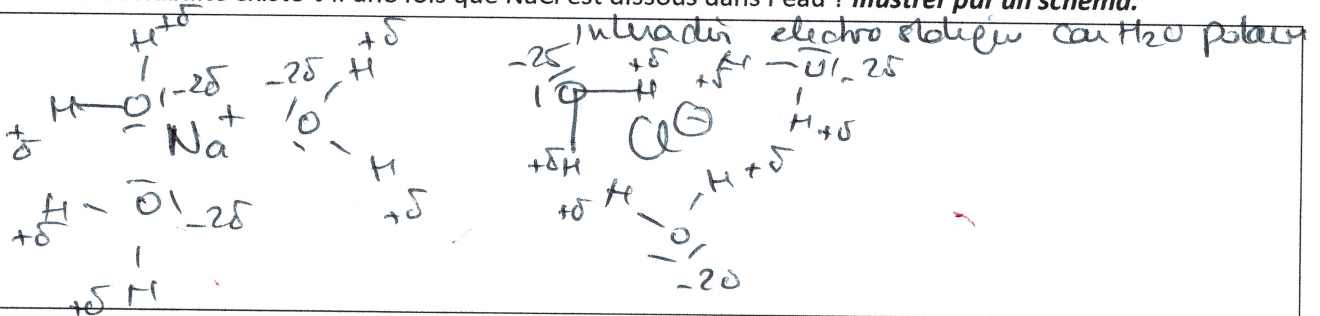 existe-t-il une fois que NaCl est dissous dans l'eau ? Illustrer par un schéma.
Interaction électrostatique car H2O polaire
H +δ
H—O -2δ
+δ
Na+
-2δ O H +δ
H +δ
H O -2δ
+δ
+δ H
-2δ O—H +δ
+δ H
Cl⊖
+δ H — O -2δ
H +δ
+δ H O H +δ
-2δ